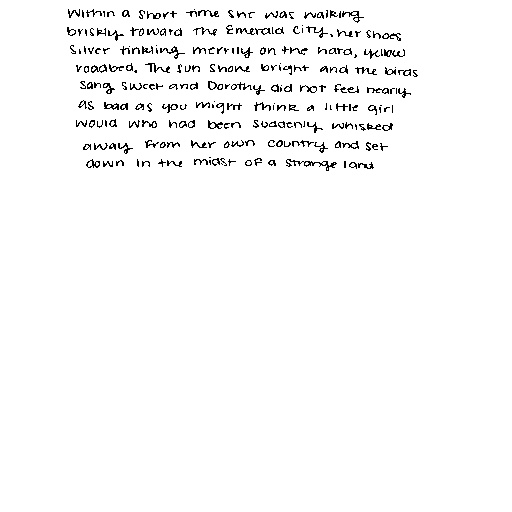 Within a short time she was walking
briskly toward the Emerald City, her shoes
Silver tinkling merrily on the hard, yellow
roadbed. The sun shone bright and the birds
Sang sweet and Dorothy did not feel nearly
as bad as you might think a little girl
would who had been suddenly whisked
away from her own country and set
down in the midst of a strange land